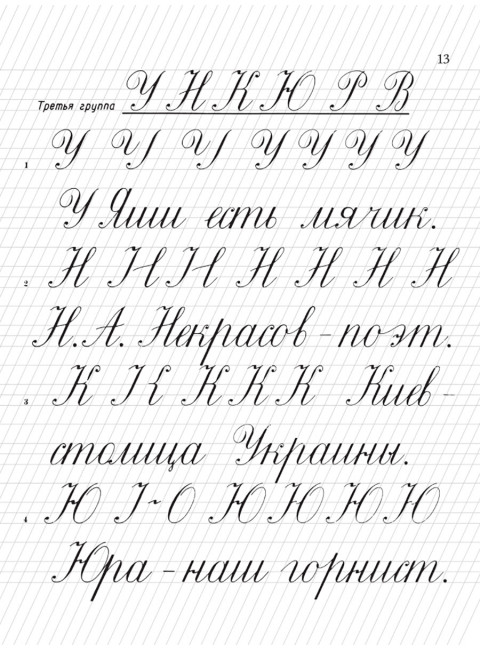 13
Третья группа У Н К Ю Р В
1 У У У У У У У
У Яши есть мячик.
2 Н Н Н Н Н Н Н
Н. А. Некрасов – поэт.
3 К К К К К Киев –
столица Украины.
4 Ю Ю Ю Ю Ю Ю
Юра – наш горнист.